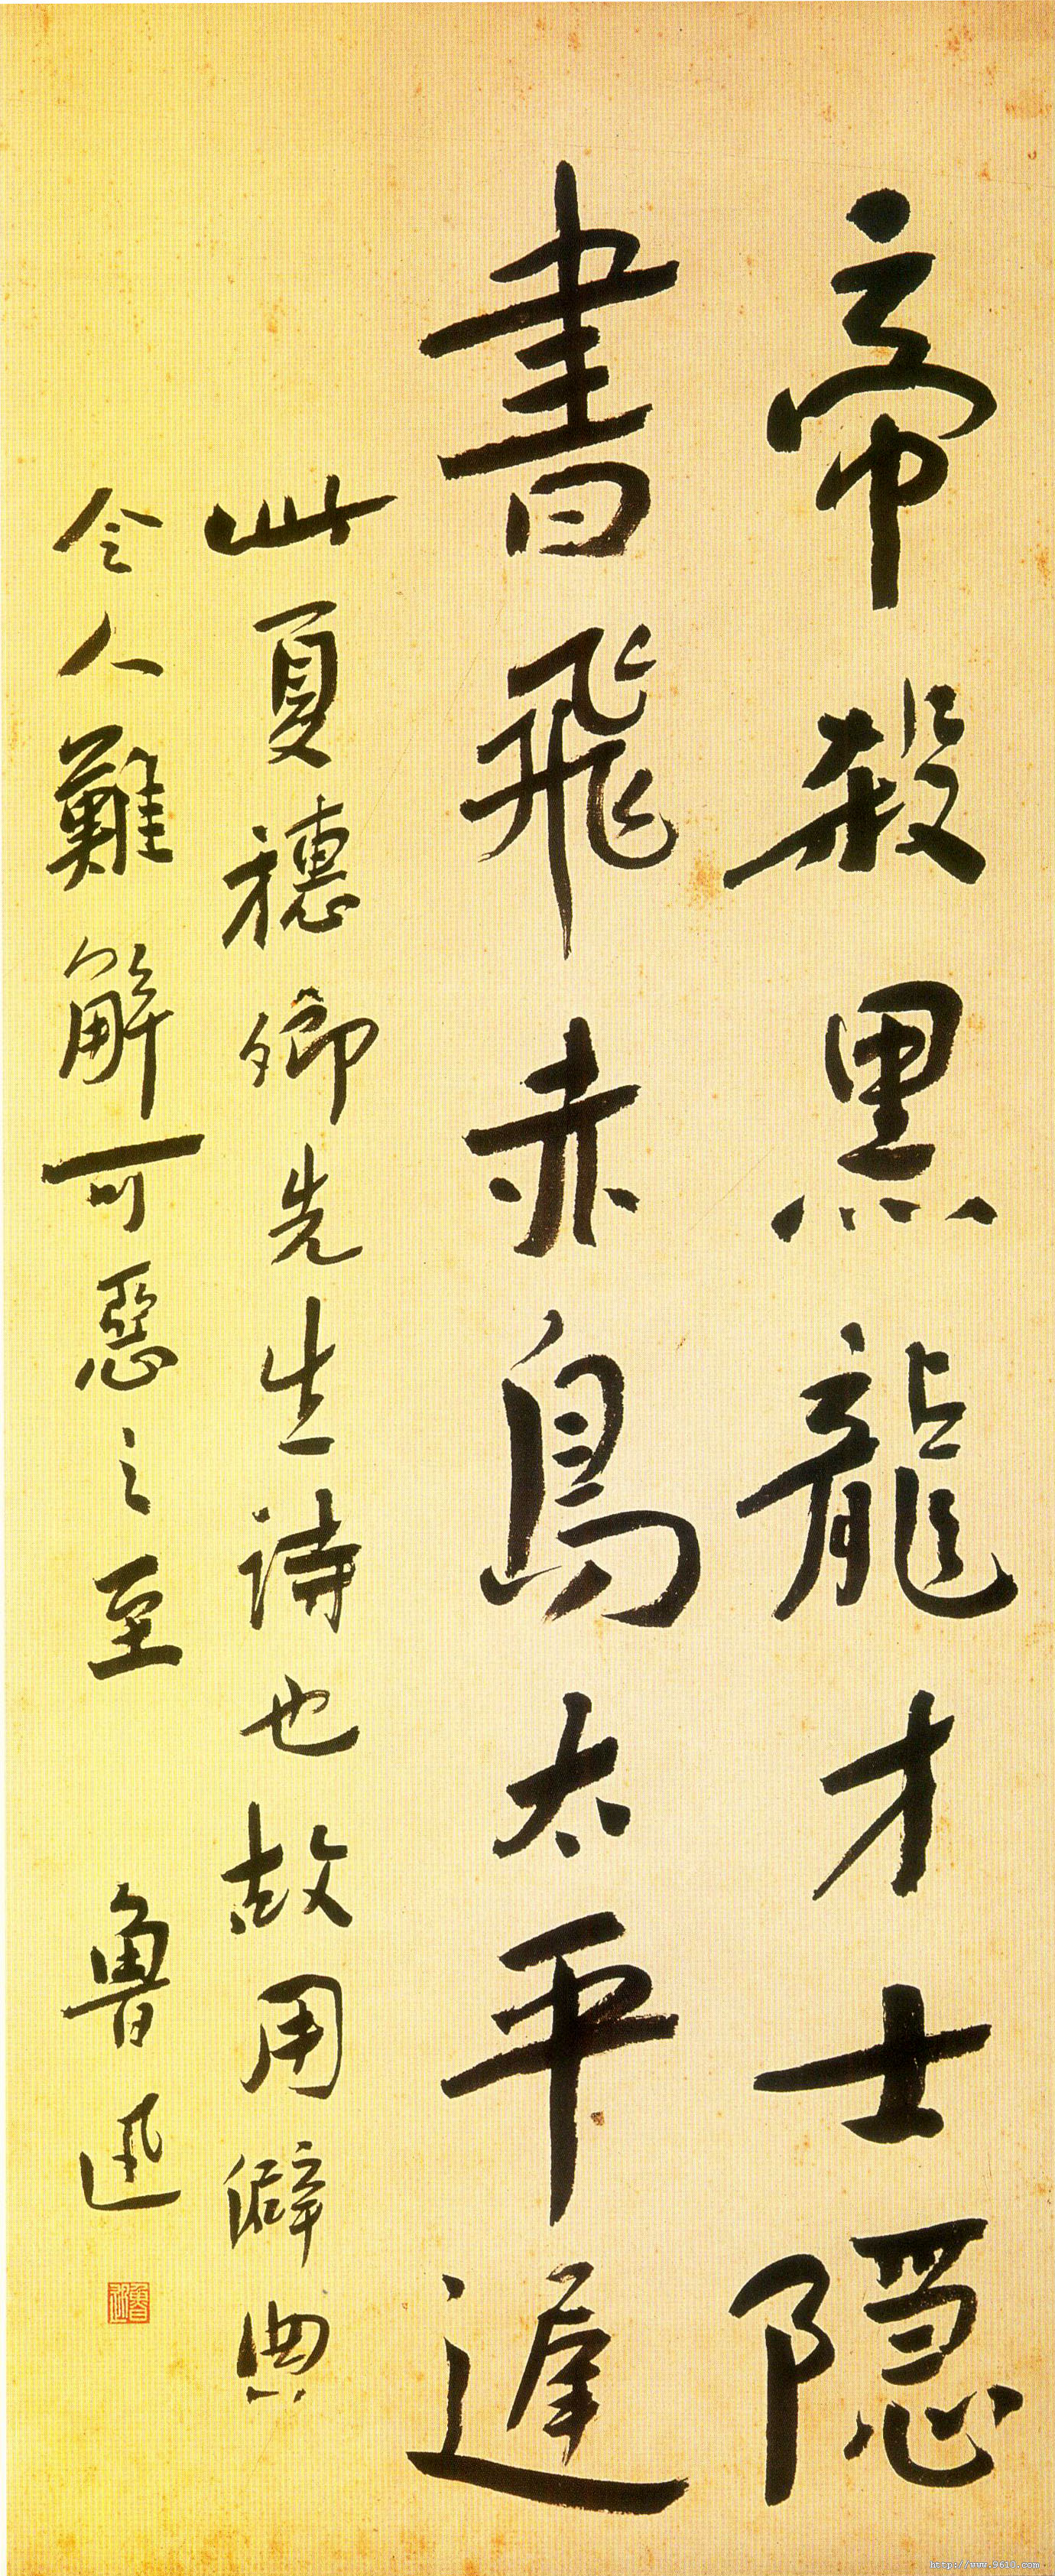 帝殺黑龍才士隱
書飛赤鳥太平遲
此夏穗卿先生詩也故用僻典
令人難解可惡之至
魯迅
魯迅
http://www.9610.com